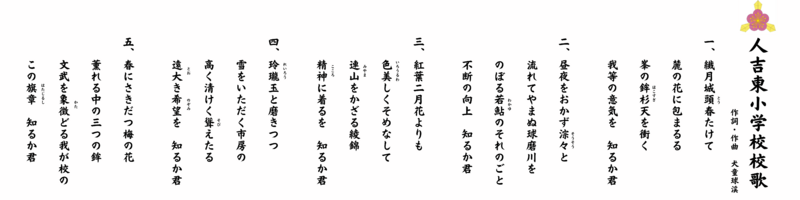 人吉東小学校校歌
作詞・作曲 犬童球渓
一、繊月城頭春たけて
麓の花に包まるる
峯の鉾杉天を衝く
我等の意気を 知るか君
二、昼夜をおかず淙々と
流れてやまぬ球磨川を
のぼる若鮎のそれのごと
不断の向上 知るか君
三、紅葉二月花よりも
色美しくそめなして
連山をかざる綾錦
精神に着るを 知るか君
四、玲瓏玉と磨きつつ
雪をいただく市房の
高く清けく聳えたる
遠大き希望を 知るか君
五、春にさきだつ梅の花
薫れる中の三つの鉾
文武を象徴どる我が校の
この旗章 知るか君